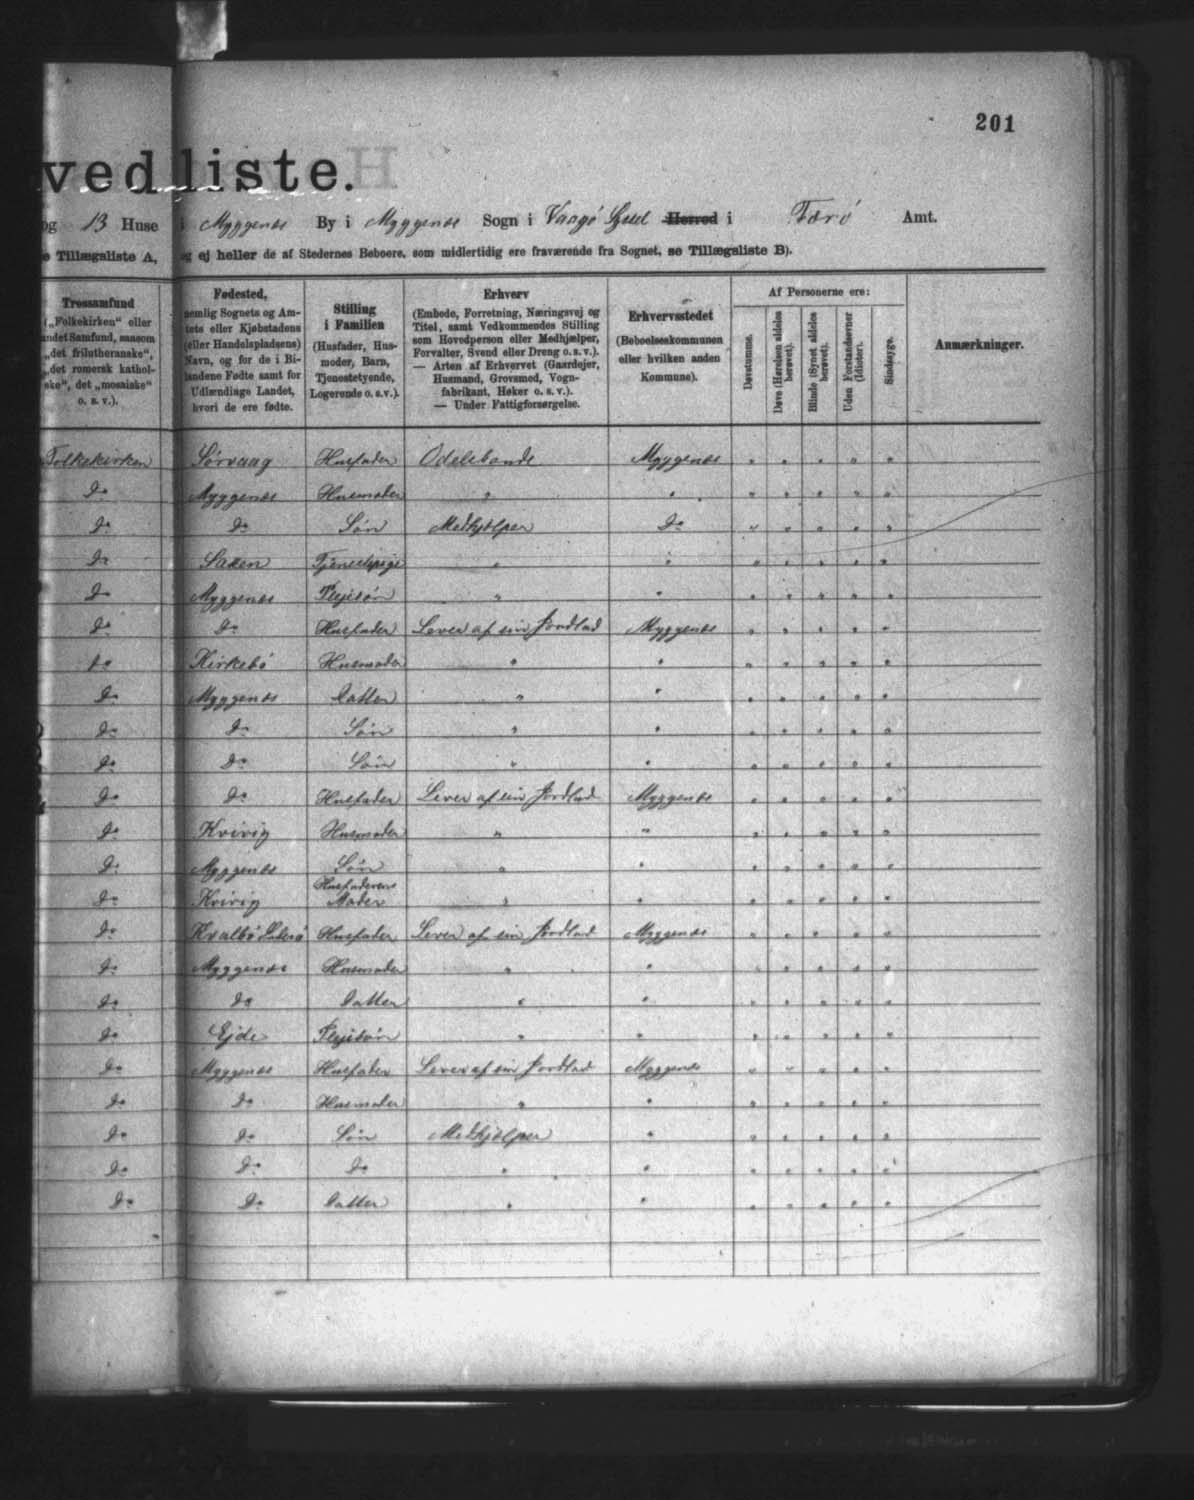 201
vedliste.
og 13 Huse i Myggenæs By i Myggenæs Sogn i Vaagø Syssel Herred i Færø Amt.
e Tillægsliste A, og ej heller de af Stedernes Beboere, som midlertidig ere fraværende fra Sognet, se Tillægsliste B).
Trossamfund
(„Folkekirken“ eller
andet Samfund, saasom
„det frilutheranske“,
„det romersk kathol-
ske“, det „mosaiske“
o. s. v.).
Fødested,
nemlig Sognets og Am-
tets eller Kjøbstadens
(eller Handelspladsens)
Navn, og for de i Bi-
landene Fødte samt for
Udlændinge Landet,
hvori de ere fødte.
Stilling
i Familien
(Husfader, Hus-
moder, Barn,
Tjenestetyende,
Logerende o. s. v.).
Erhverv
(Embede, Forretning, Næringsvej og
Titel, samt Vedkommendes Stilling
som Hovedperson eller Medhjælper,
Forvalter, Svend eller Dreng o. s. v.).
— Arten af Erhvervet (Gaardejer,
Husmand, Grovsmed, Vogn-
fabrikant, Høker o. s. v.).
— Under Fattigforsørgelse.
Erhvervsstedet
(Beboelseskommunen
eller hvilken anden
Kommune).
Af Personerne ere:
Døvstumme.
Døve (Hørelsen aldeles
berøvet).
Blinde (Synet aldeles
berøvet).
Uden Forstandsevner
(Idioter).
Sindssyge.
Anmærkninger.
Folkekirken Sørvaag Husfader Odelsbonde Myggenæs " " " " "
Do Myggenæs Husmoder " " " " " " "
Do Do Søn Medhjælper Do " " " " "
Do Saxen Tjenestepige " " " " " " "
Do Myggenæs Plejesøn " " " " " " "
Do Do Husfader Lever af sin Jordlod Myggenæs " " " " "
Do Kirkebø Husmoder " " " " " " "
Do Myggenæs Datter " " " " " " "
Do Do Søn " " " " " " "
Do Do Søn " " " " " " "
Do Do Husfader Lever af sin Jordlod Myggenæs " " " " "
Do Kvivig Husmoder " " " " " " "
Do Myggenæs Søn " " " " " " "
Do Kvivig Husfaderens Moder " " " " " " "
Do Kvalbø Suderø Husfader Lever af sin Jordlod Myggenæs " " " " "
Do Myggenæs Husmoder " " " " " " "
Do Do Datter " " " " " " "
Do Ejde Plejesøn " " " " " " "
Do Myggenæs Husfader Lever af sin Jordlod Myggenæs " " " " "
Do Do Husmoder " " " " " " "
Do Do Søn Medhjælper " " " " " "
Do Do Do " " " " " " "
Do Do Datter " " " " " " "